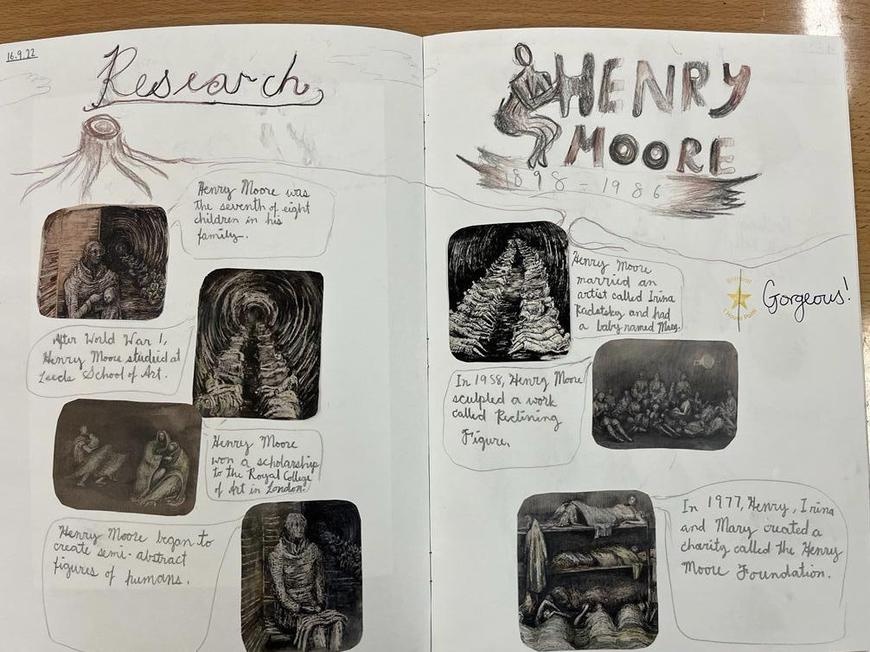 16.9.22
Research
Henry Moore was
the seventh of eight
children in his
family.
After World War 1,
Henry Moore studied at
Leeds School of Art.
Henry Moore
won a scholarship
to the Royal College
of Art in London.
Henry Moore began to
create semi-abstract
figures of humans.
HENRY
MOORE
1898-1986
Henry Moore
married an
artist called Irina
Radetsky and had
a baby named Mary.
Gorgeous!
In 1958, Henry Moore
sculpted a work
called Reclining
Figure.
In 1977, Henry, Irina
and Mary created a
charity called the Henry
Moore Foundation.